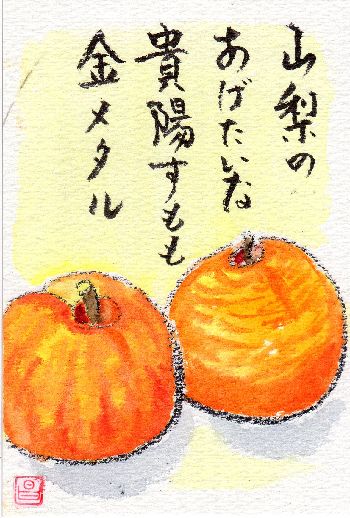 山梨の
あげたいな
貴陽すもも
金メタル
昌